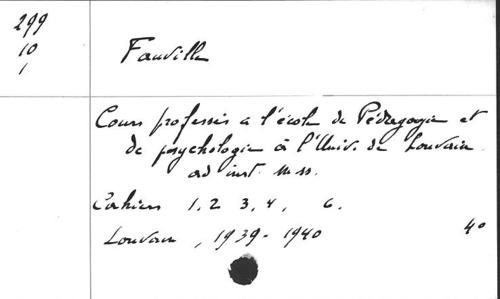 299
10
1
Fauville
Cours professés à l'école de Pédagogie et
de psychologie à l'Univ. de Louvain.
ad inst. mss.
Cahiers 1, 2 3, 4, 6.
Louvain, 1939-1940 4°